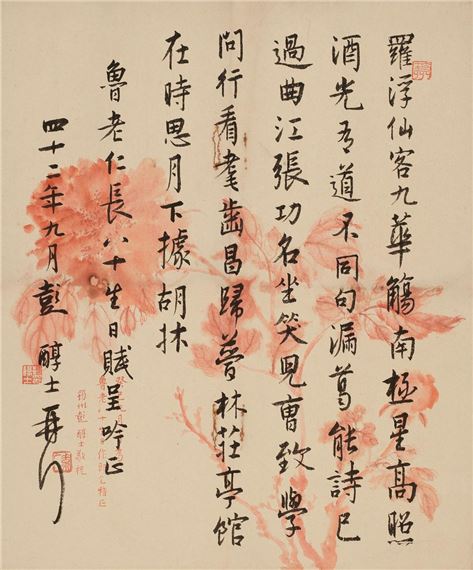 羅浮仙客九華觴南極星高照
酒光吾道不同句漏葛能詩已
過曲江張功名坐笑兒曹致學
問行看耄齒昌歸夢林莊亭館
在時思月下據胡牀
魯老仁長八十生日賦呈吟正
四十二年九月彭醇士
魯老
筠州彭醇士敬祝